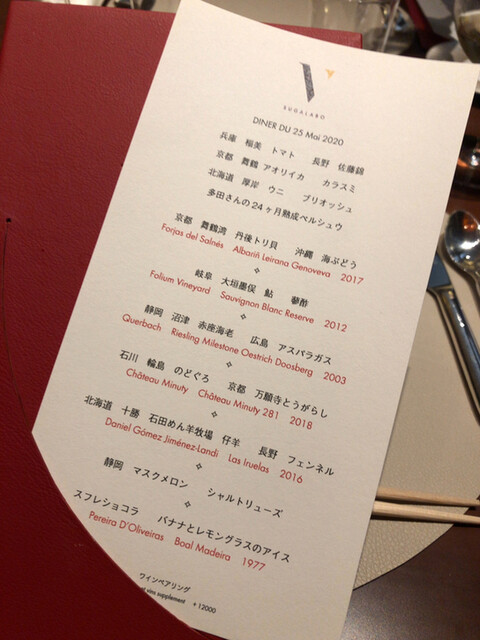 SUGALABO
DINER DU 25 Mai 2020
兵庫 稲美 トマト 長野 佐藤錦
京都 舞鶴 アオリイカ カラスミ
北海道 厚岸 ウニ ブリオッシュ
多田さんの24ヶ月熟成ペルシュウ
京都 舞鶴湾 丹後トリ貝 沖縄 海ぶどう
Forjas del Salnés Albariñ Leirana Genoveva 2017
岐阜 大垣墨俣 鮎 蓼酢
Folium Vineyard Sauvignon Blanc Reserve 2012
静岡 沼津 赤座海老 広島 アスパラガス
Querbach Riesling Milestone Oestrich Doosberg 2003
石川 輪島 のどぐろ 京都 万願寺とうがらし
Château Minuty Château Minuty 281 2018
北海道 十勝 石田めん羊牧場 仔羊 長野 フェンネル
Daniel Gómez Jiménez-Landi Las Iruelas 2016
静岡 マスクメロン シャルトリューズ
スフレショコラ バナナとレモングラスのアイス
Pereira D'Oliveiras Boal Madeira 1977
ワインペアリング
vins supplement + 12000